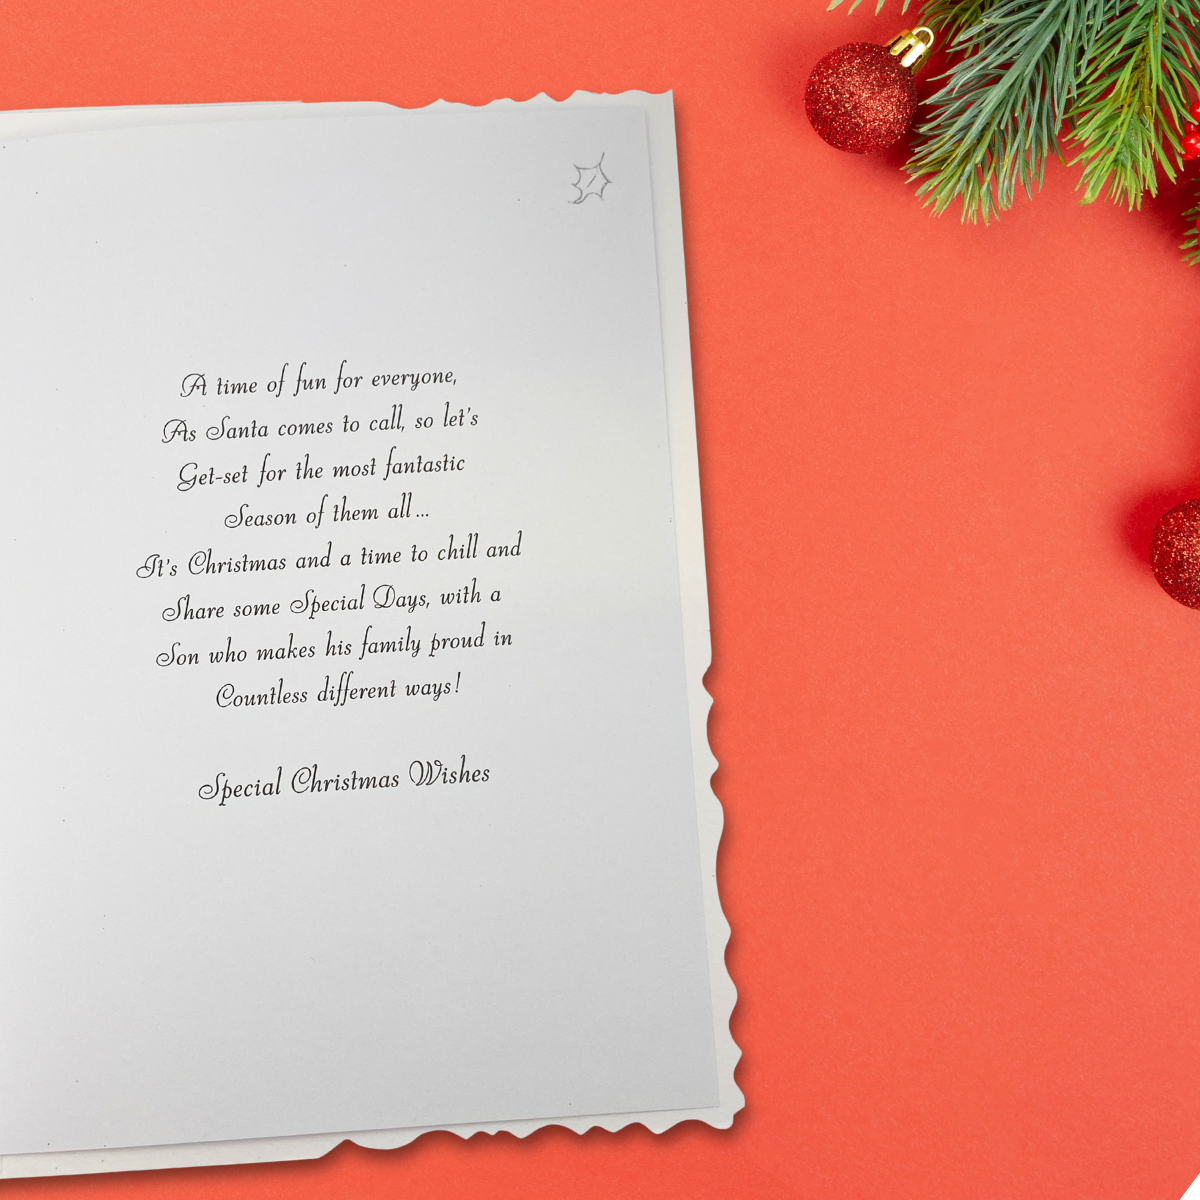 A time of fun for everyone,
As Santa comes to call, so let's
Get-set for the most fantastic
Season of them all...
It's Christmas and a time to chill and
Share some Special Days, with a
Son who makes his family proud in
Countless different ways!
Special Christmas Wishes